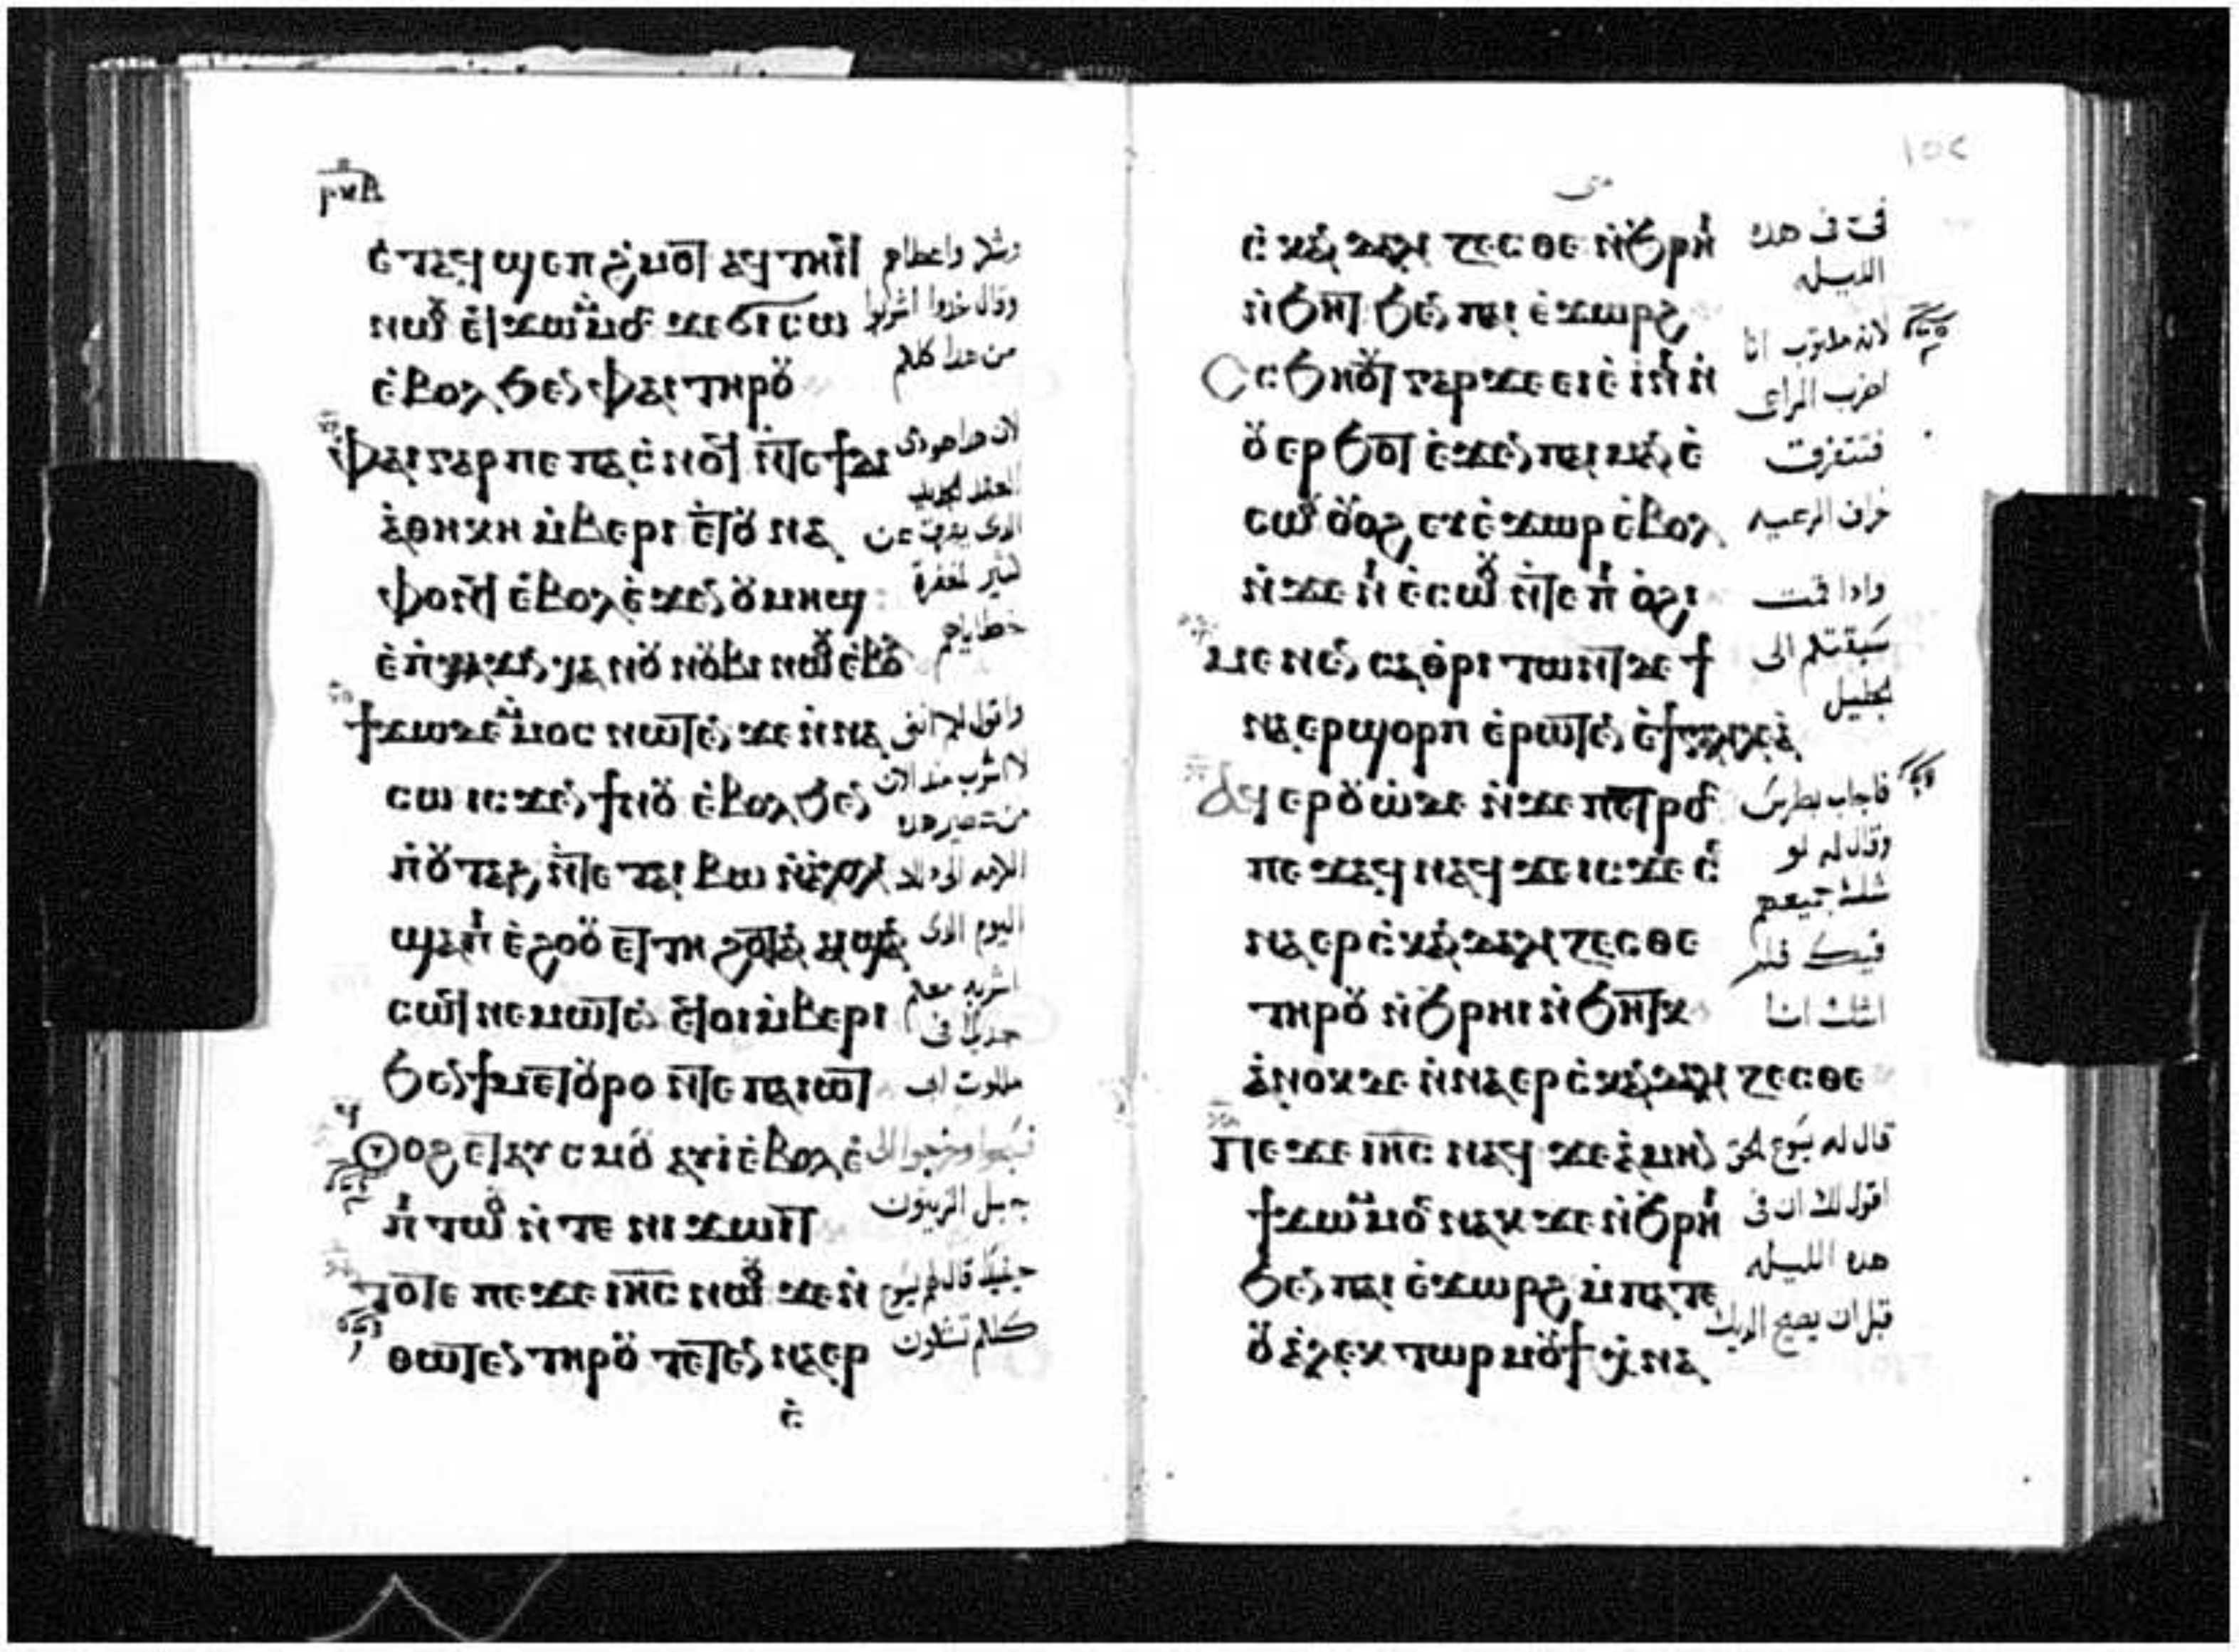 ⲣⲙⲏ
ⲉ̇ⲧⲁϥϣⲉⲡϩ̇ⲙⲟⲧ ⲁϥⲧⲏⲓϥ
ⲛⲱⲟⲩ ⲉ̇ϥϫⲱ ⲙ̇ⲙⲟⲥ ϫⲉ ϭⲓ ⲥⲱ
ⲉ̇ⲃⲟⲗ ϧⲉⲛ ⲫⲁⲓ ⲧⲏⲣⲟⲩ
ⲫⲁⲓ ⲅⲁⲣ ⲡⲉ ⲡⲁⲥ̇ⲛⲟϥ ⲛ̇ⲧⲉ ϯⲇⲓ
ⲁ̇ⲑⲏⲕⲏ ⲙ̇ⲃⲉⲣⲓ ⲉ̇ⲧⲟⲩⲛⲁ
ⲫⲟⲛϥ ⲉ̇ⲃⲟⲗ ⲉ̇ϫⲉⲛ ⲟⲩⲙⲏϣ
ⲉ̇ⲡ̇ϫⲓⲛⲭⲁ ⲛⲟⲩⲛⲟⲃⲓ ⲛⲱⲟⲩ ⲉ̇ⲃⲟⲗ
ϯϫⲱ ⲇⲉ ⲙ̇ⲙⲟⲥ ⲛⲱⲧⲉⲛ ϫⲉ ⲛ̇ⲛⲁ
ⲥⲱ ⲓⲥϫⲉⲛ ϯⲛⲟⲩ ⲉ̇ⲃⲟⲗ ϧⲉⲛ
ⲡ̇ⲟⲩⲧⲁϩ ⲛ̇ⲧⲉ ⲧⲁⲓ ⲃⲱ ⲛ̇ⲁ̇ⲗⲟⲗⲓ
ϣⲁⲡⲓ ⲉ̇ϩⲟⲟⲩ ⲉⲧⲧⲏ ϩⲟⲧⲁⲛ ⲁⲓϣⲁⲛ
ⲥⲱϥ ⲛⲉⲙⲱⲧⲉⲛ ⲉ̇ϥⲟⲓ ⲙ̇ⲃⲉⲣⲓ
ϧⲉⲛ ϯⲙⲉⲧⲟⲩⲣⲟ ⲛ̇ⲧⲉ ⲡⲁⲓⲱⲧ
ⲟⲩⲟϩ ⲉⲧⲁⲩⲥⲙⲟⲩ ⲁⲩⲓ̇ ⲉ̇ⲃⲟⲗ ⲉ̇
ⲡⲓⲧⲱⲟⲩ ⲛ̇ⲧⲉ ⲛⲓϫⲱⲓⲧ
ⲧⲟⲧⲉ ⲡⲉϫⲉ ⲓⲏⲥ ⲛⲱⲟⲩ ϫⲉ ⲛ̇
ⲑⲱⲧⲉⲛ ⲧⲏⲣⲟⲩ ⲧⲉⲧⲉⲛⲛⲁⲉⲣ
ⲥ̇
وشكر واعطاهم
وقال خدوا اشربوا
من هدا كلكم
لان هدا هو دمى
العهد الجديد
الدى يهرق عن
كثير لمغفرة
خطاياهم
واقول لكم انى
لا اشرب منذ الان
من عصير هده
الكرمه الى دلك
اليوم الدى
اشربه معكم
جديدًا فى
ملكوت ابى
فسبحوا وخرجوا الى
جبل الزيتون
حينيدٍ قال لهم يسوع
كلكم تشكون
١٥٤
متى
ⲥ̇ⲕⲁⲛⲇⲁⲗⲓⲍⲉⲥⲑⲉ ⲛ̇ϧⲣⲏⲓ
ⲛ̇ϧⲏⲧ ϧⲉⲛ ⲡⲁⲓ ⲉ̇ϫⲱⲣϩ
ⲥ̇ϧⲏⲟⲩⲧ ⲅⲁⲣ ϫⲉ ⲉⲓⲉ̇ϣⲁⲣⲓ ⲙ̇ⲡⲓⲙⲁⲛ̇
ⲉ̇ⲥⲱⲟⲩ ⲟⲩⲟϩ ⲉⲩⲉ̇ϫⲱⲣ ⲉ̇ⲃⲟⲗ
ⲛ̇ϫⲉ ⲛⲓⲉ̇ⲥⲱⲟⲩ ⲛ̇ⲧⲉ ⲡⲓⲟ̇ϩⲓ
ⲙⲉⲛⲉⲛⲥⲁ ⲑⲣⲓⲧⲱⲛⲧ ⲇⲉ ϯ
ⲛⲁⲉⲣϣⲟⲣⲡ ⲉ̇ⲣⲱⲧⲉⲛ ⲉ̇ϯⲅⲁⲗⲓⲗⲉⲁ̇
ⲁϥⲉⲣⲟⲩⲱ̇ ⲇⲉ ⲛ̇ϫⲉ ⲡⲉⲧⲣⲟⲥ
ⲡⲉϫⲁϥ ⲛⲁϥ ϫⲉ ⲓⲥϫⲉ ⲥⲉ
ⲛⲁⲉⲣⲥ̇ⲕⲁⲛⲇⲁⲗⲓⲍⲉⲥⲑⲉ
ⲧⲏⲣⲟⲩ ⲛ̇ϧⲣⲏⲓ ⲛ̇ϧⲏⲧⲕ
ⲁ̇ⲛⲟⲕ ⲇⲉ ⲛ̇ⲛⲁⲉⲣⲥ̇ⲕⲁⲛⲇⲁⲗⲓⲍⲉⲥⲑⲉ
ⲡⲉϫⲉ ⲓⲏⲥ ⲛⲁϥ ϫⲉ ⲁ̇ⲙⲏⲛ
ϯϫⲱ ⲙ̇ⲙⲟⲥ ⲛⲁⲕ ϫⲉ ⲛ̇ϧⲣⲏⲓ
ϧⲉⲛ ⲡⲁⲓ ⲉ̇ϫⲱⲣϩ ⲙ̇ⲡⲁⲧⲉ
ⲟⲩⲁ̇ⲗⲉⲕⲧⲱⲣ ⲙⲟⲩϯ ⲭ̇ⲛⲁ
فى هده
الليله
لانه مكتوب انا
اضرب الراعى
فتتفرق
خراف الرعيه
وادا قمت
سبقتكم الى
الجليل
فاجاب بطرس
وقال له لو
شك جميعهم
فيك فلم
اشك انا
قال له يسوع الحق
اقول لك ان فى
هده الليله
قبل ان يصيح الديك